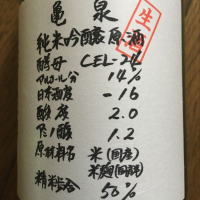 亀泉
生酒
純米吟醸原酒
酵母 CEL-24
アルコール分 14%
日本酒度 -16
酸度 2.0
アミノ酸 1.2
原材料名 米(国産)
米麹(国産米)
精米歩合 50%